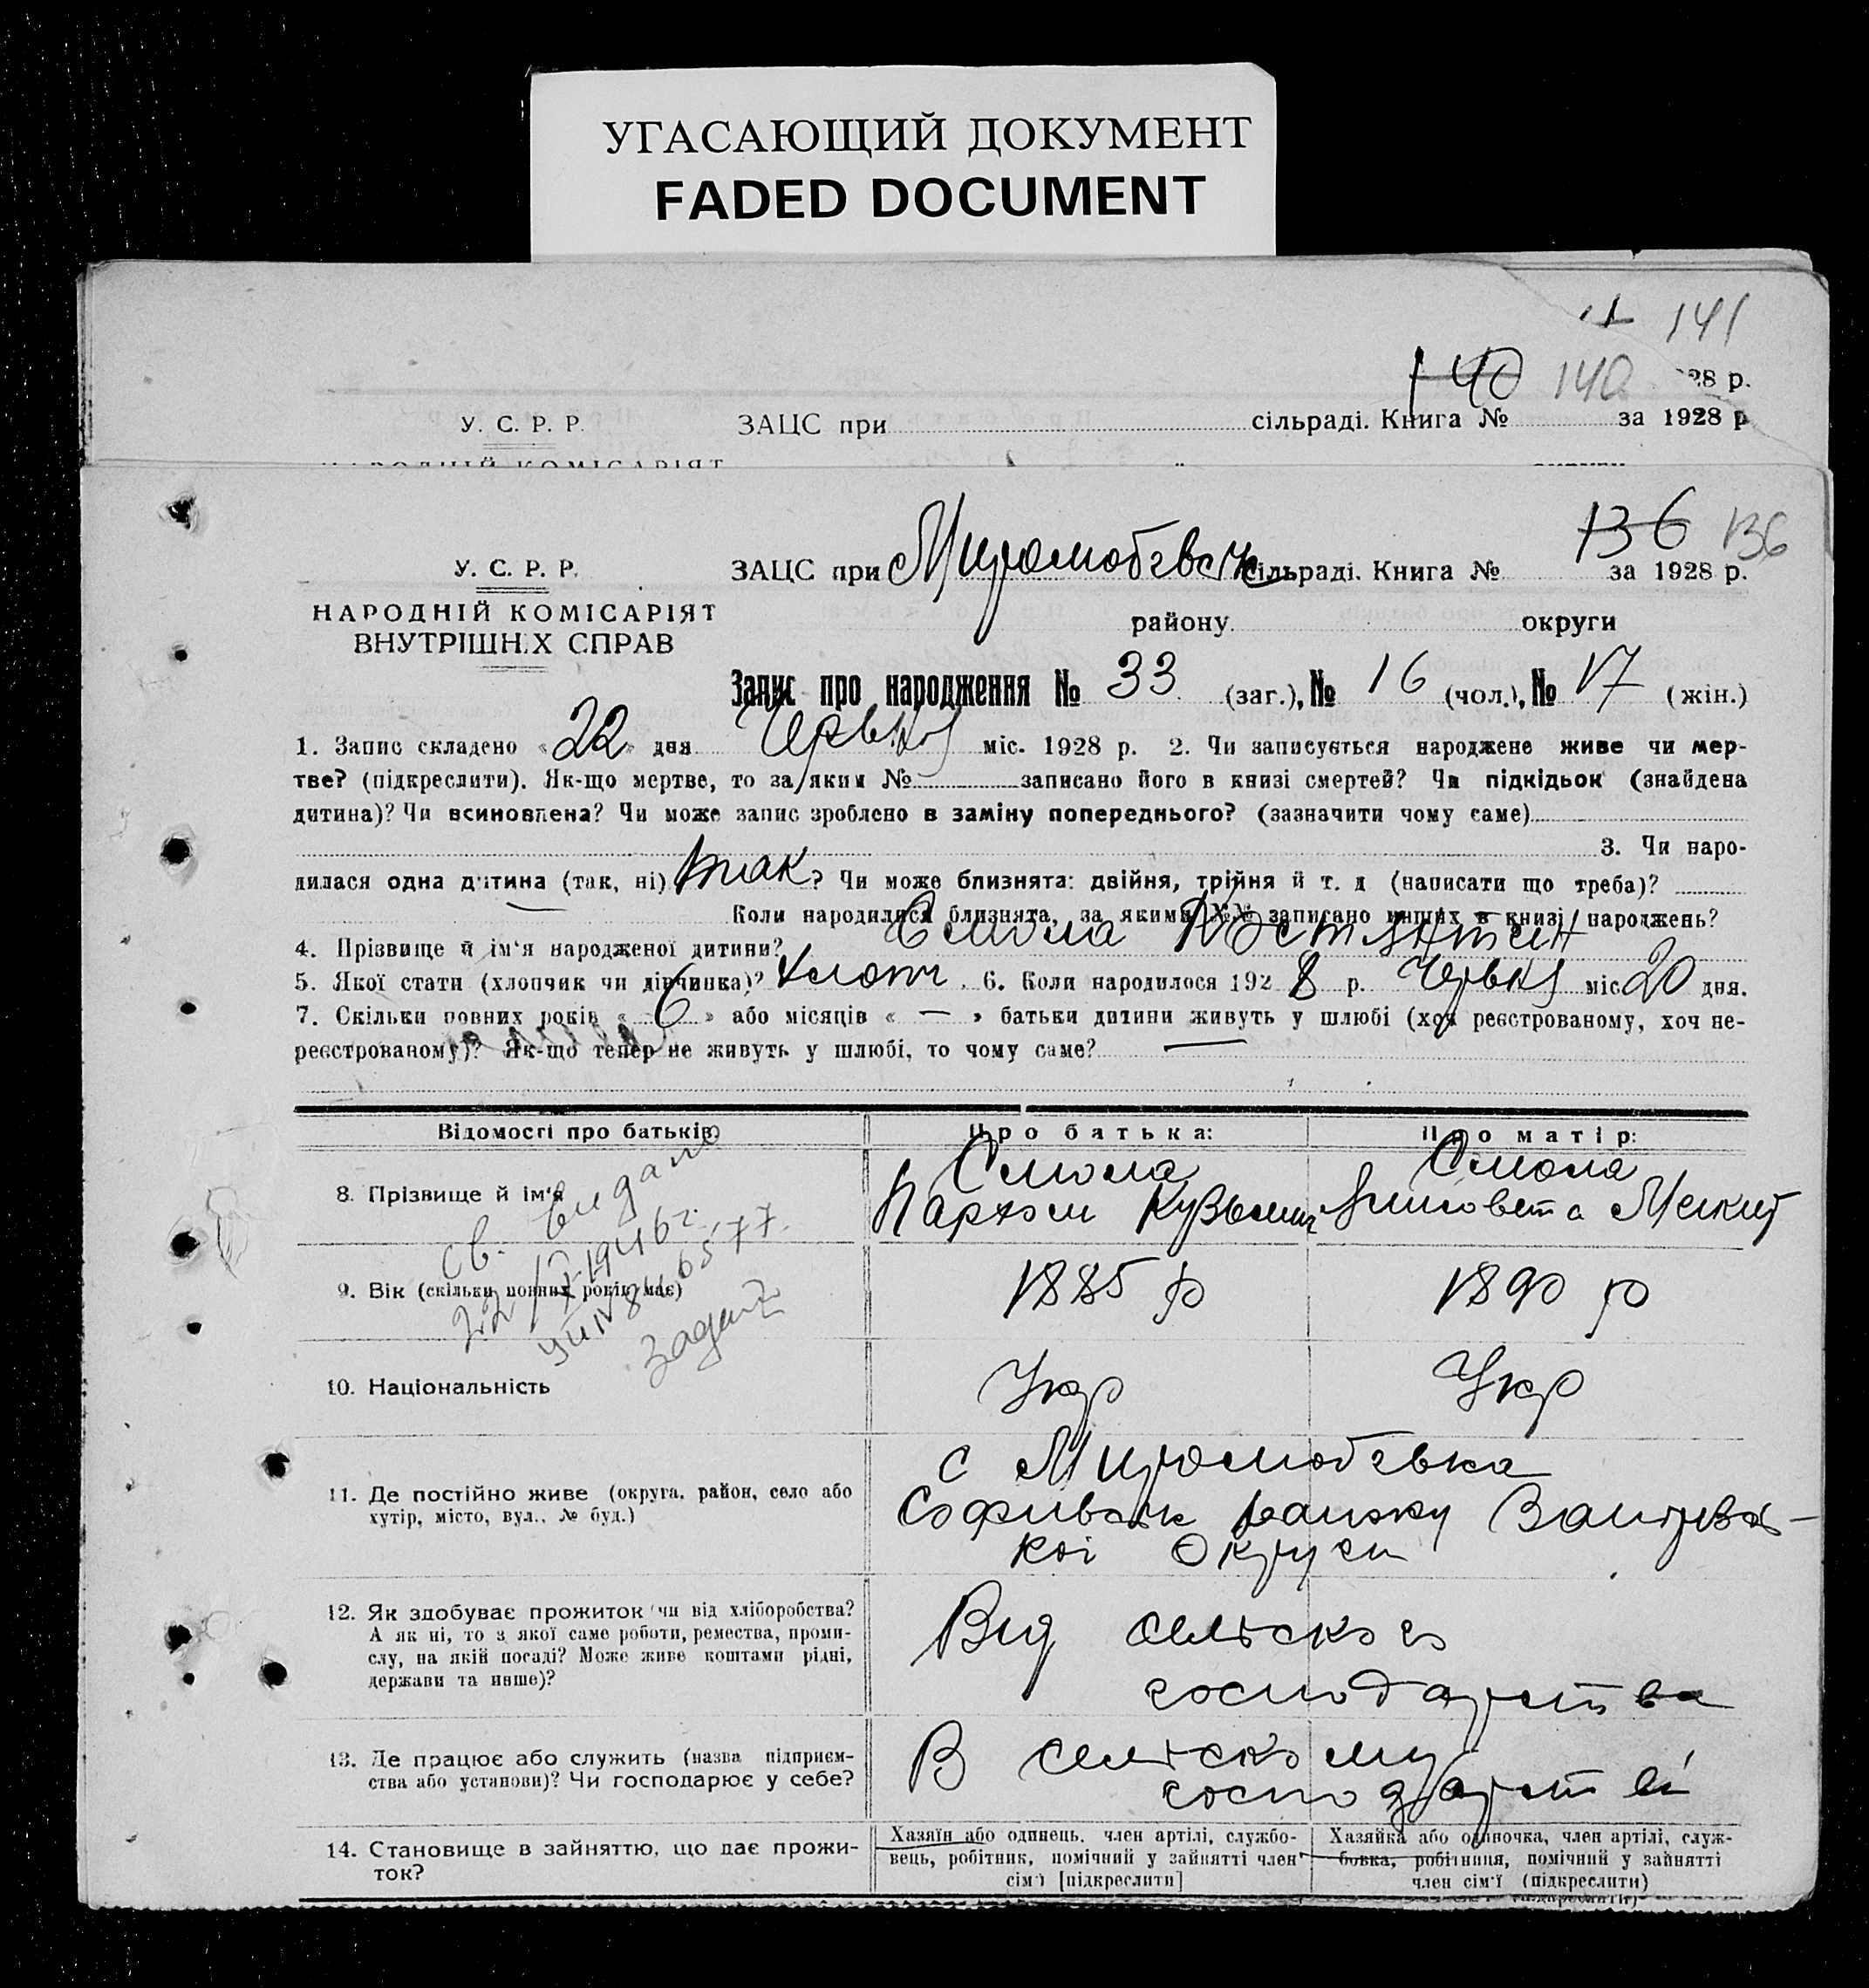 УГАСАЮЩИЙ ДОКУМЕНТ
FADED DOCUMENT
141
140 140 28 р.
У. С. Р. Р. ЗАЦС при сільраді. Книга № за 1928 р
НАРОДНІЙ КОМІСАРІЯТ
136 136
У. С. Р. Р. ЗАЦС при Миролюбівськ сільраді. Книга № за 1928 р.
НАРОДНІЙ КОМІСАРІЯТ району округи
ВНУТРІШН.Х СПРАВ
Запис про народження № 33 (заг.), № 16 (чол.), № 17 (жін.)
1. Запис складено « 22 » дня Червня міс. 1928 р. 2. Чи записується народжене живе чи мер-
тве? (підкреслити). Як-що мертве, то за яким № записано його в книзі смертей? Чи підкідьок (знайдена
дитина)? Чи всиновлена? Чи може запис зроблено в заміну попереднього? (зазначити чому саме)
3. Чи наро-
дилася одна дитина (так, ні) так ? Чи може близнята: двійня, трійня й т. д (написати що треба)?
Коли народилися близнята, за якими №№ записано инших в книзі народжень?
4. Прізвище й ім'я народженої дитини? Смола Костянтин
5. Якої стати (хлопчик чи дівчинка)? хлопч . 6. Коли народилося 192 8 р. Червня міс 20 дня.
7. Скільки повних років « 6 » або місяців « — » батьки дитини живуть у шлюбі (хоч реєстрованому, хоч не-
реєстрованому)? Як-що тепер не живуть у шлюбі, то чому саме? —
Відомості про батьків: Про батька: Про матір:
8. Прізвище й ім'я Смола Смола
Пархом Кузьмич Лисовета Мекит
св. видано
22/X-1946 г.
9. Вік (скільки повних років має) 1885 р 1890 р
10. Національність Укр Укр
11. Де постійно живе (округа, район, село або
хутір, місто, вул., № буд.)
с Миролюбівка
Софиевськ району Запорізь-
кої Округи
12. Як здобуває прожиток (чи від хліборобства?
А як ні, то з якої саме роботи, ремества, проми-
слу, на якій посаді? Може живе коштами рідні,
держави та инше)?
Від сільского
господарства
13. Де працює або служить (назва підприєм-
ства або установи)? Чи господарює у себе?
В сільскому
господарстві
14. Становище в зайняттю, що дає прожи-
ток?
Хазяїн або одинець, член артілі, службо-
вець, робітник, помічний у зайнятті член
сім'ї [підкреслити]
Хазяйка або одиночка, член артілі, служ-
бовка, робітниця, помічний у зайнятті
член сім'ї (підкреслити)